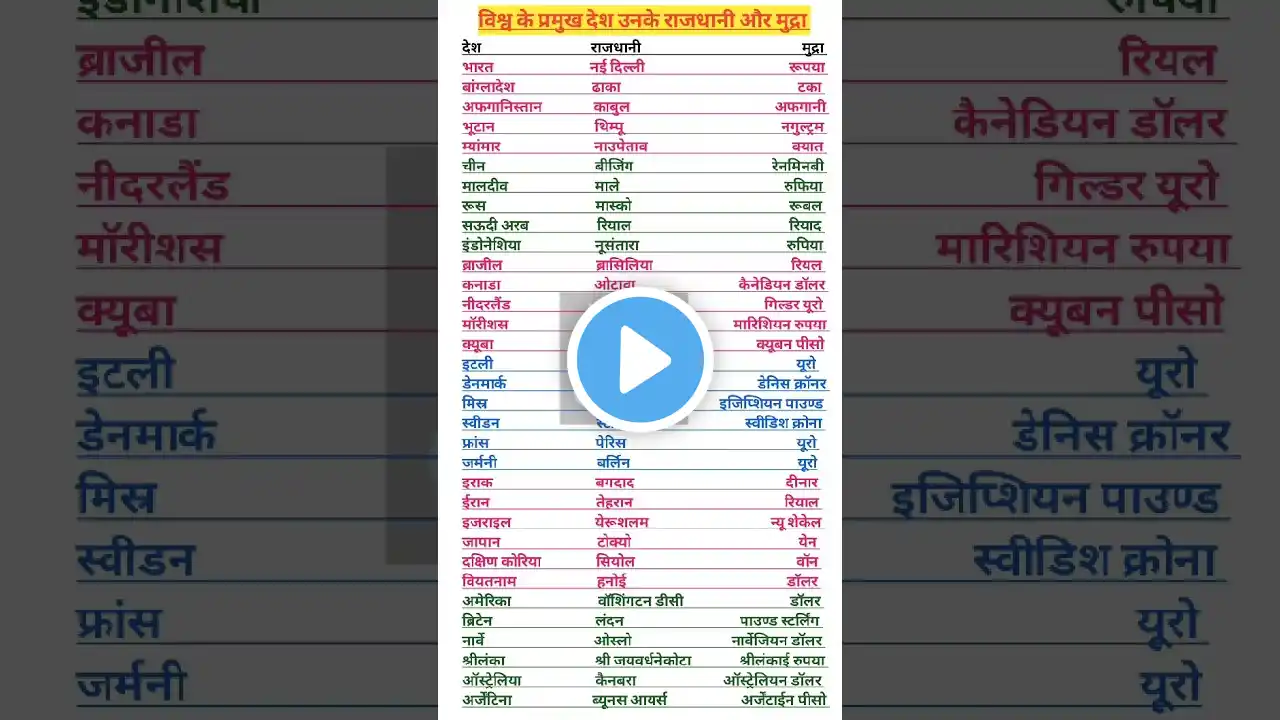 विश्व के प्रमुख देश उनके राजधानी और मुद्रा
देश राजधानी मुद्रा
भारत नई दिल्ली रूपया
बांग्लादेश ढाका टका
अफगानिस्तान काबुल अफगानी
भूटान थिम्पू नगुल्ट्रम
म्यांमार नाउपेताव क्यात
चीन बीजिंग रेनमिनबी
मालदीव माले रुफिया
रूस मास्को रूबल
सऊदी अरब रियाल रियाद
इंडोनेशिया नूसंतारा रुपिया
ब्राजील ब्रासिलिया रियल
कनाडा ओटावा कैनेडियन डॉलर
नीदरलैंड गिल्डर यूरो
मॉरीशस मारिशियन रुपया
क्यूबा क्यूबन पीसो
इटली यूरो
डेनमार्क डेनिस क्रॉनर
मिस्र इजिप्शियन पाउण्ड
स्वीडन स्वीडिश क्रोना
फ्रांस पेरिस यूरो
जर्मनी बर्लिन यूरो
इराक बगदाद दीनार
ईरान तेहरान रियाल
इजराइल येरूशलम न्यू शेकेल
जापान टोक्यो येन
दक्षिण कोरिया सियोल वॉन
वियतनाम हनोई डॉलर
अमेरिका वॉशिंगटन डीसी डॉलर
ब्रिटेन लंदन पाउण्ड स्टर्लिंग
नार्वे ओस्लो नार्वेजियन डॉलर
श्रीलंका श्री जयवर्धनेकोटा श्रीलंकाई रुपया
ऑस्ट्रेलिया कैनबरा ऑस्ट्रेलियन डॉलर
अर्जेंटिना ब्यूनस आयर्स अर्जेंटाईन पीसो
ब्राजील रियल
कनाडा कैनेडियन डॉलर
नीदरलैंड गिल्डर यूरो
मॉरीशस मारिशियन रुपया
क्यूबा क्यूबन पीसो
इटली यूरो
डेनमार्क डेनिस क्रॉनर
मिस्र इजिप्शियन पाउण्ड
स्वीडन स्वीडिश क्रोना
फ्रांस यूरो
जर्मनी यूरो